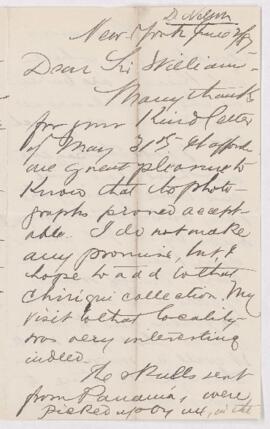 D. Nelson
New York June
Dear Sir William -
Many thanks
for your kind letter
of May 31st. It affords
me great pleasure to
know that the photo-
graphs proved accept-
able. I do not make
any promise, but, I
hope to add to that
Chiriqui collection. My
visit to that locality
was very interesting
indeed.
The skulls sent
from Panama, were
picked up by me, in the